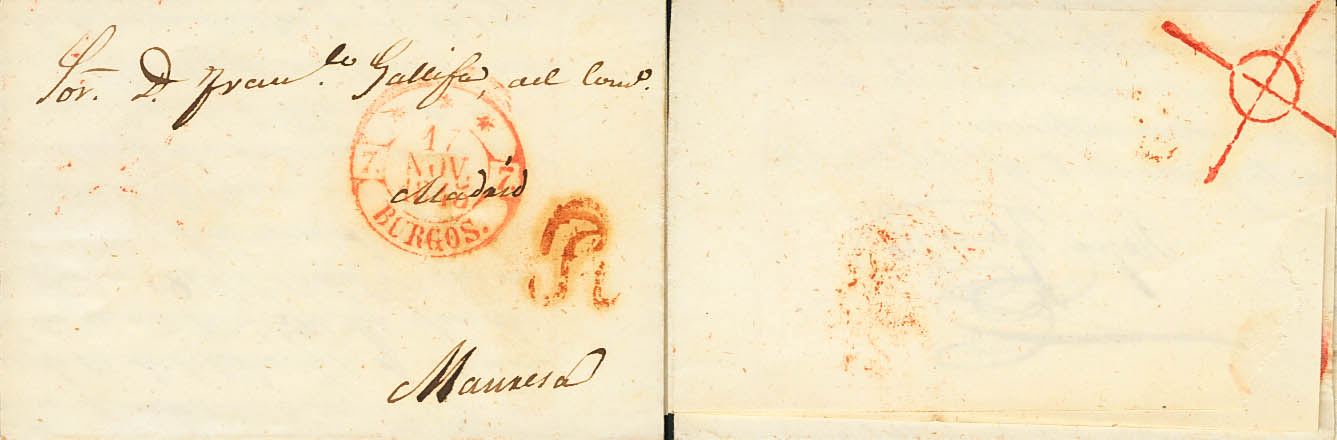 Sor. D. Franco. Gallifa, del Como.
17
7 NOV. 7
Madrid
BURGOS.
R
Manresa